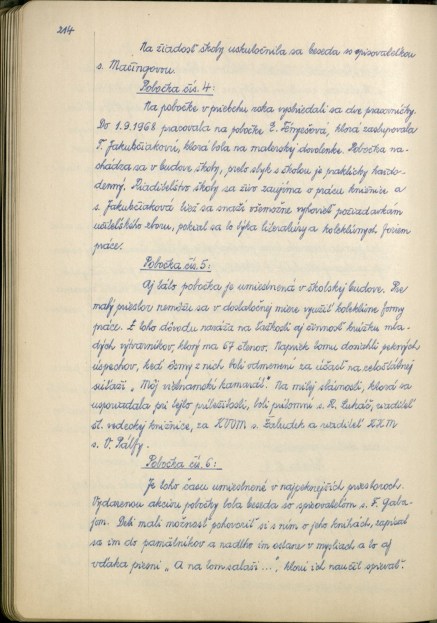 214
Na žiadosť školy uskutočnila sa beseda so spisovateľkou
s. Mačingovou.
Pobočka čís. 4:
Na pobočke v priebehu roka vystriedali sa dve pracovníčky.
Do 1.9.1968 pracovala na pobočke E. Fényešová, ktorá zastupovala
F. Jakubčiakovú, ktorá bola na materskej dovolenke. Pobočka na-
chádza sa v budove školy, preto styk s školou je prakticky každo-
denný. Riaditeľstvo školy sa živo zaujíma o prácu knižnice a
s. Jakubčiaková tiež sa snaží všemožne vyhovieť požiadavkám
učiteľského zboru, pokiaľ sa to týka literatúry a kolektívnych foriem
práce.
Pobočka čís. 5:
Aj táto pobočka je umiestnená v školskej budove. Pre
malý priestor nemôže sa v dostatočnej miere využiť kolektívne formy
práce. Z toho dôvodu naráža na ťažkosti aj činnosť krúžku mla-
dých výtvarníkov, ktorý má 67 členov. Napriek tomu dosiahli pekných
úspechov, keď ôsmy z nich boli odmenení za účasť na celoštátnej
súťaži „Môj vietnamský kamarát." Na milej slávnosti, ktorá sa
usporiadala pri tejto príležitosti, boli prítomní s. R. Lukáč, riaditeľ
št. vedeckej knižnice, za s. Žaludek a riaditeľ
s. O. Pálfy.
Pobočka čís. 6:
Je toho času umiestnená v najpeknejších priestoroch.
Vydarenou akciou pobočky bola beseda so spisovateľom s. F. Gaba-
jom. Deti mali možnosť pohovoriť si s ním o jeho knihách, zapísal
sa im do pamätníkov a nadlho im ostane v mysliach a to aj
vďaka piesni „A na tom salaši...", ktorú ich naučil spievať.